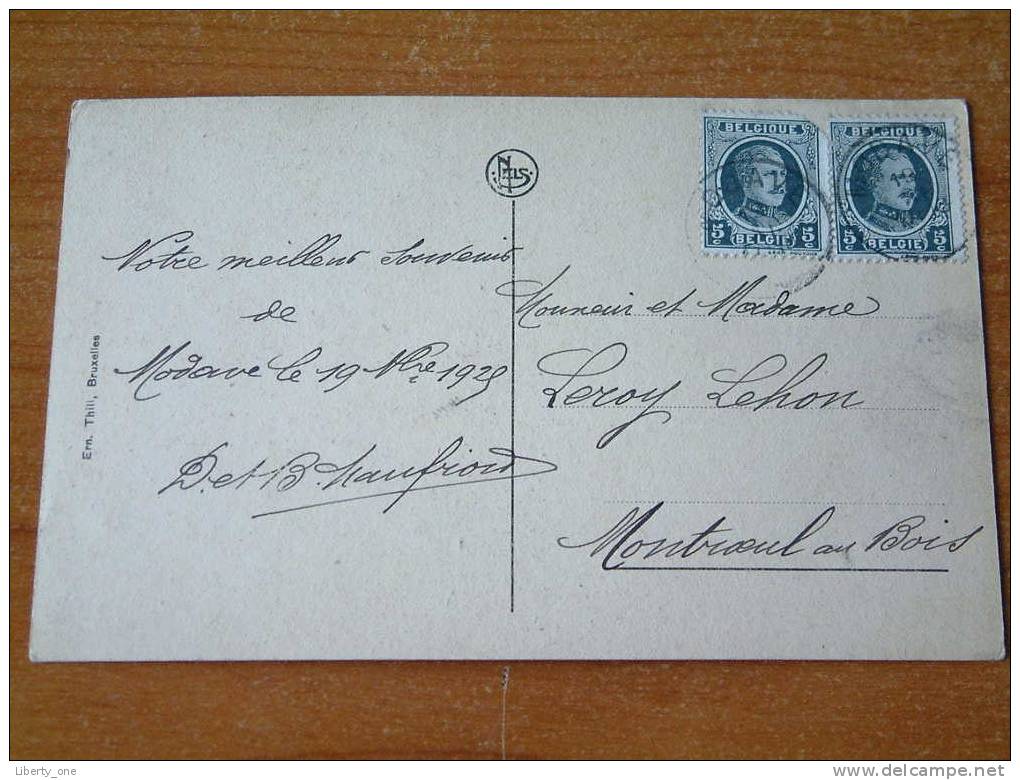 NELS
BELGIQUE
5c 5c
BELGIE
BELGIQUE
5c 5c
BELGIE
Notre meilleur Souvenir
de
Modave le 19 9bre 1925
D. et B.
Monsieur et Madame
Leroy Lehon
Montroeul au Bois
Ern. Thill, Bruxelles
Liberty_one
www.delcampe.net